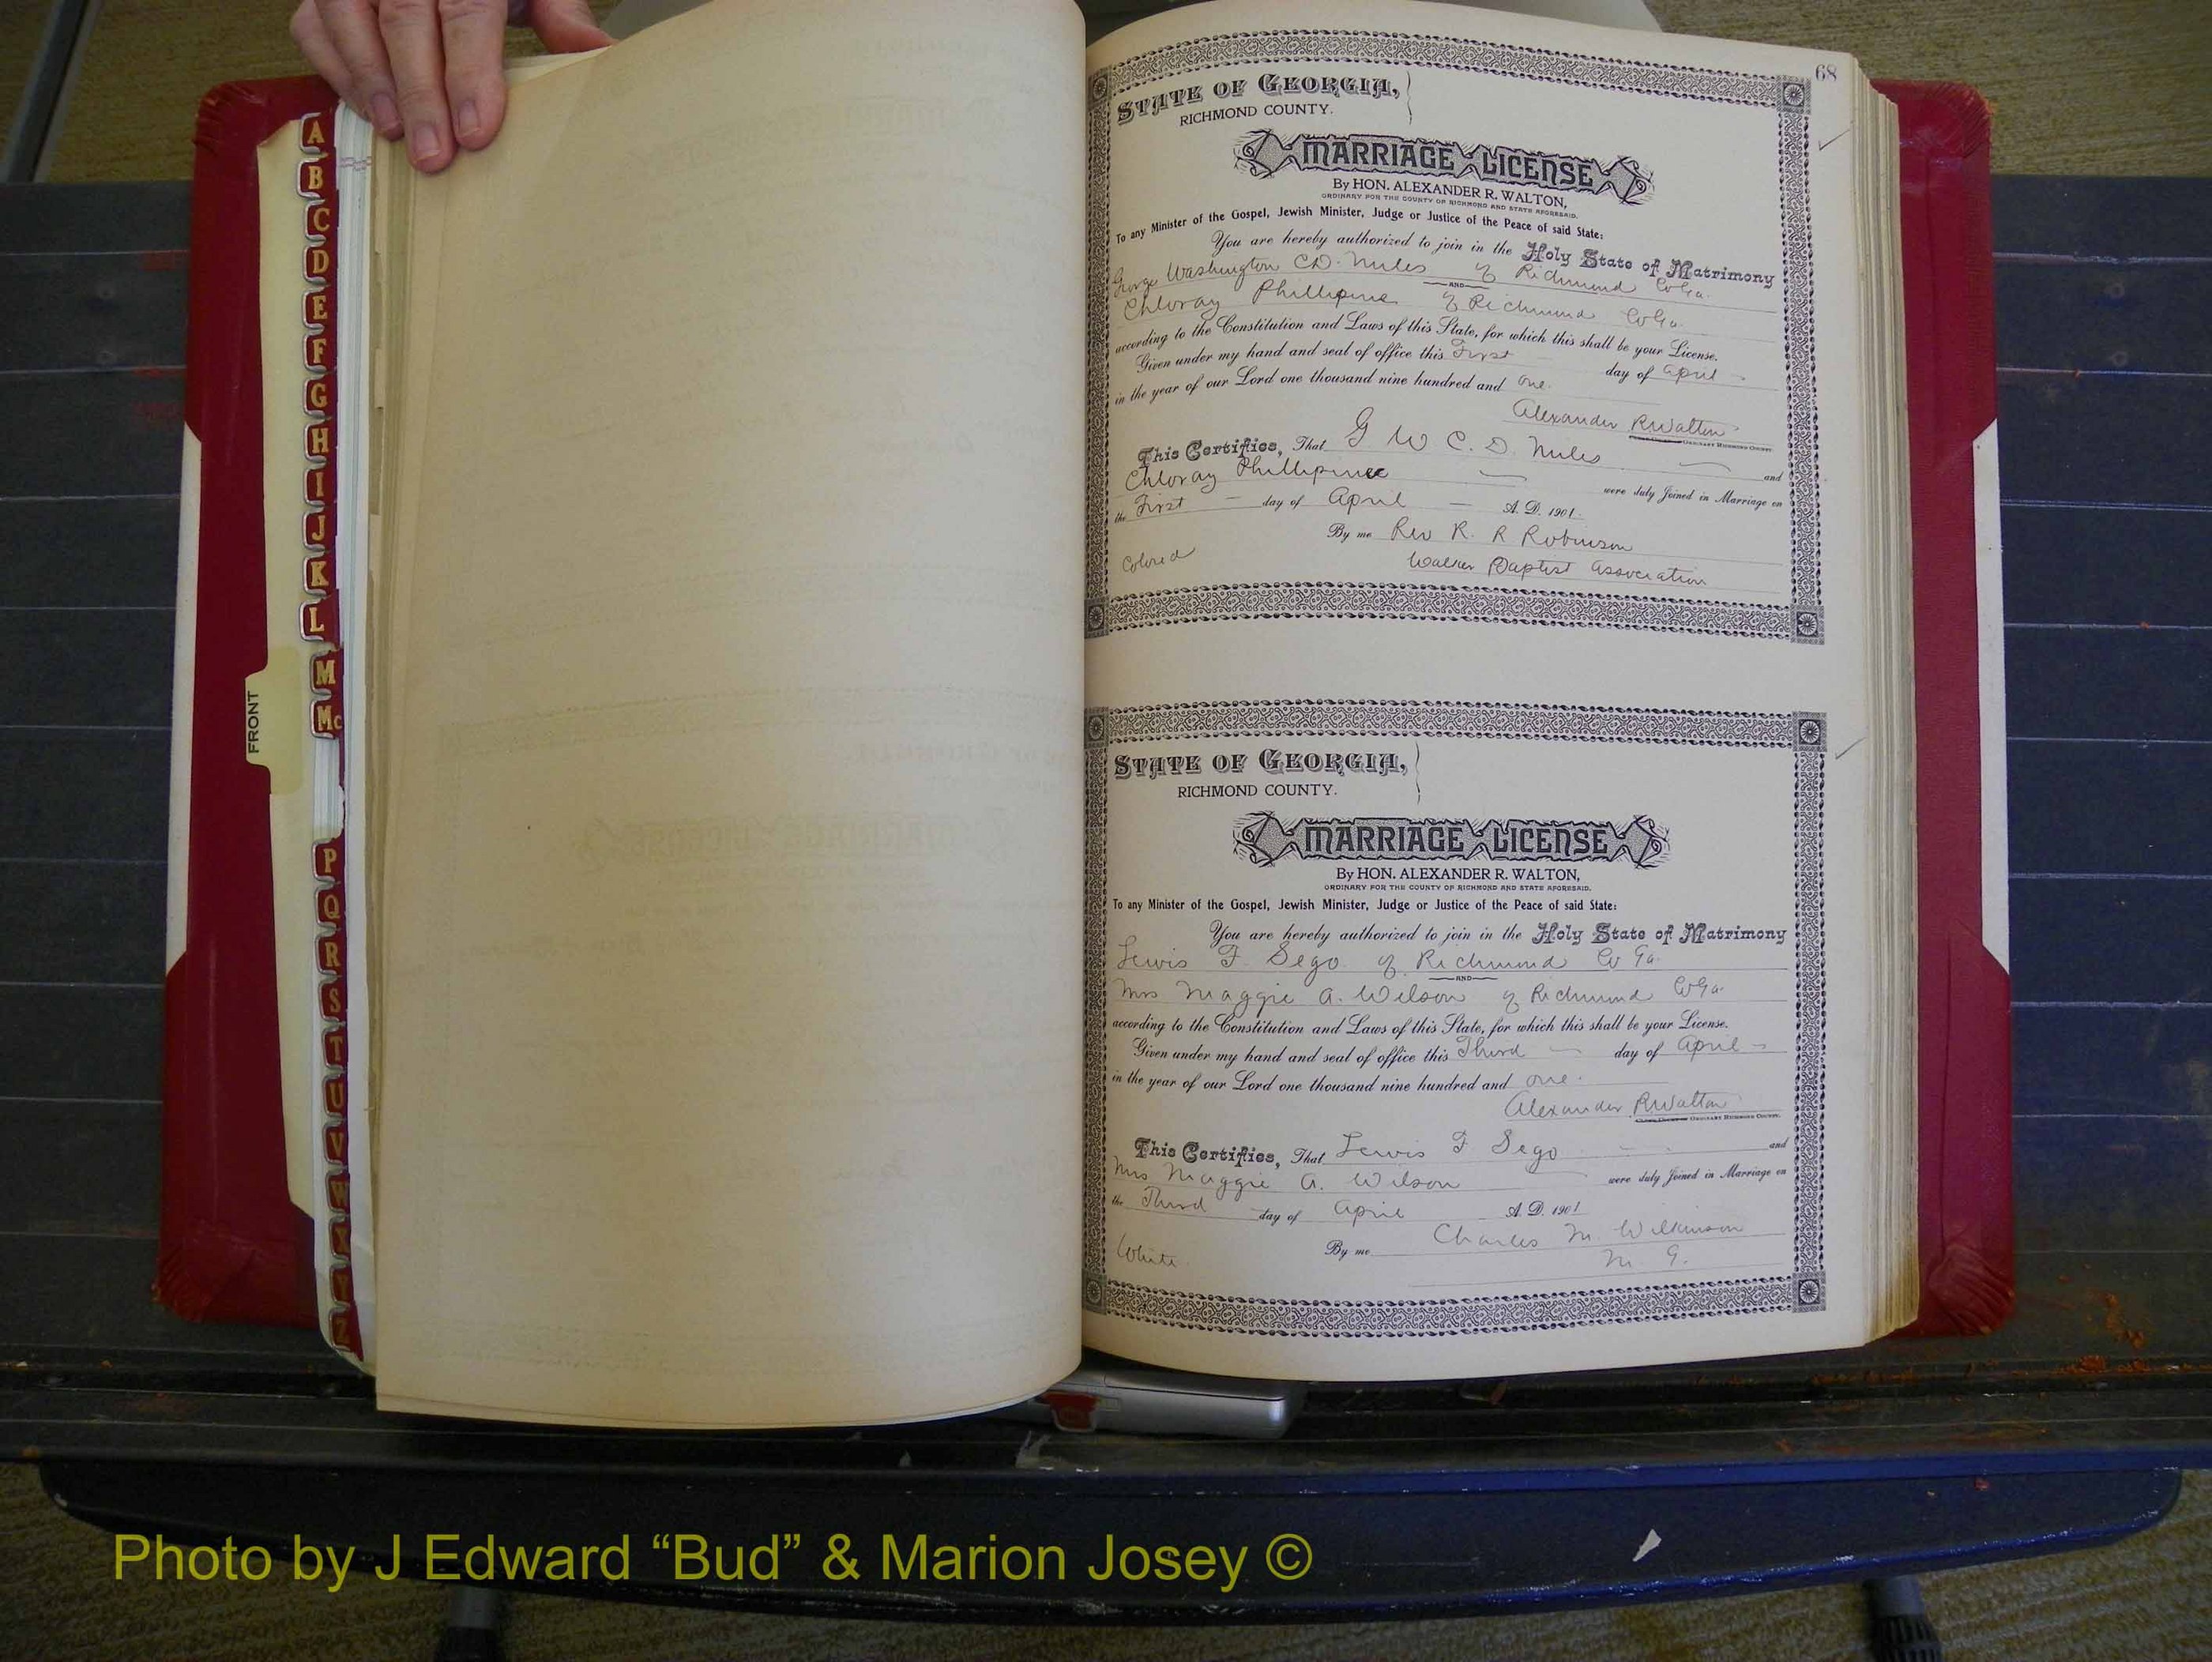 68
STATE OF GEORGIA,
RICHMOND COUNTY.
MARRIAGE LICENSE
By HON. ALEXANDER R. WALTON,
ORDINARY FOR THE COUNTY OF RICHMOND AND STATE AFORESAID.
To any Minister of the Gospel, Jewish Minister, Judge or Justice of the Peace of said State:
You are hereby authorized to join in the Holy State of Matrimony
George Washington C.D. Niles of Richmond Co Ga.
AND
Chloray Phillipine of Richmond Co Ga.
according to the Constitution and Laws of this State, for which this shall be your License.
Given under my hand and seal of office this First day of April
in the year of our Lord one thousand nine hundred and one.
Alexander R Walton
ORDINARY RICHMOND COUNTY.
This Certifies, That G W C. D. Niles and
Chloray Phillipine were duly Joined in Marriage on
the First day of April A. D. 1901.
By me Rev R. R Robinson
Colored Walker Baptist Association
STATE OF GEORGIA,
RICHMOND COUNTY.
MARRIAGE LICENSE
By HON. ALEXANDER R. WALTON,
ORDINARY FOR THE COUNTY OF RICHMOND AND STATE AFORESAID.
To any Minister of the Gospel, Jewish Minister, Judge or Justice of the Peace of said State:
You are hereby authorized to join in the Holy State of Matrimony
Lewis F. Sego of Richmond Co Ga.
AND
Mrs Maggie A. Wilson of Richmond Co Ga.
according to the Constitution and Laws of this State, for which this shall be your License.
Given under my hand and seal of office this Third day of April
in the year of our Lord one thousand nine hundred and one.
Alexander R Walton
ORDINARY RICHMOND COUNTY.
This Certifies, That Lewis F Sego and
Mrs Maggie A. Wilson were duly Joined in Marriage on
the Third day of April A. D. 1901
By me Charles M. Wilkinson
White M. G.
A
B
C
D
E
F
G
H
I
J
K
L
M
Mc
FRONT
P
Q
R
S
T
U
V
W
X
Y
Z
Photo by J Edward “Bud” & Marion Josey ©